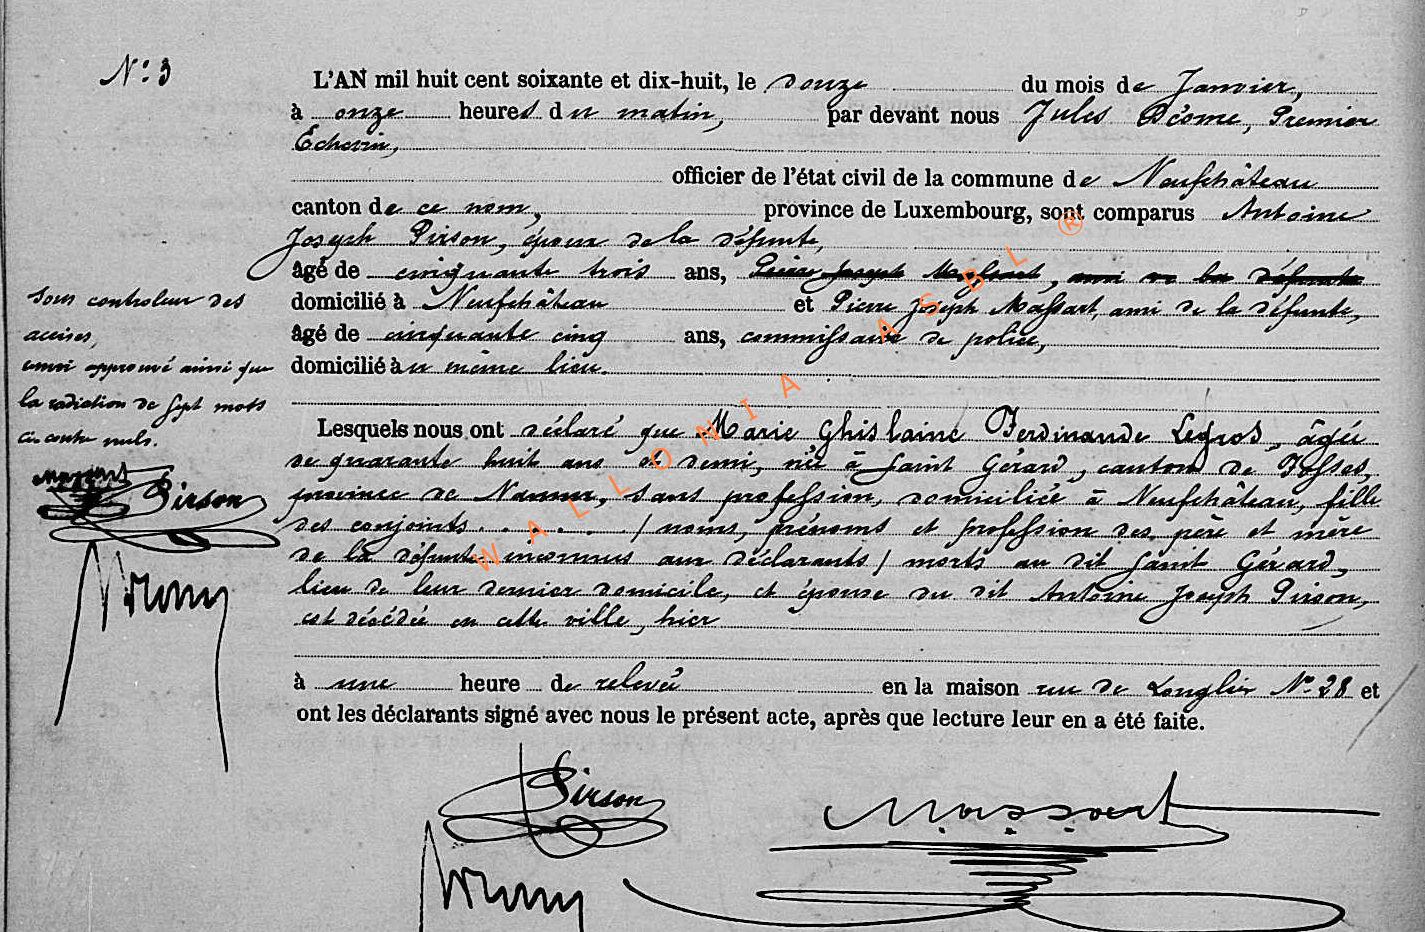 Nº 3
L'AN mil huit cent soixante et dix-huit, le douze du mois de Janvier,
à onze heures du matin, par devant nous Jules Déome, Premier
Echevin,
officier de l'état civil de la commune de Neufchâteau
canton de ce nom, province de Luxembourg, sont comparus Antoine
Joseph Pirson, époux de la défunte,
âgé de cinquante trois ans, Pierre Joseph Massart, ami de la défunte
domicilié à Neufchâteau et Pierre Joseph Massart, ami de la défunte,
âgé de cinquante cinq ans, commissaire de police,
domicilié au même lieu.
Lesquels nous ont déclaré que Marie Ghislaine Ferdinande Legros, âgée
de quarante huit ans et demi, née à Saint Gérard, canton de Fosses,
province de Namur, sans profession, domiciliée à Neufchâteau, fille
des conjoints . . . . / noms, prénoms et profession des père et mère
de la défunte inconnus aux déclarants / morts au dit Saint Gérard,
lieu de leur dernier domicile, et épouse du dit Antoine Joseph Pirson,
est décédée en cette ville, hier
à une heure de relevée en la maison rue de Longlier Nº 28 et
ont les déclarants signé avec nous le présent acte, après que lecture leur en a été faite.
Sous controleur des
accises,
renvoi approuvé ainsi que
la radiation de sept mots
ci-contre nuls.
Massart
Pirson
Pirson
Massart
WALLONIA ASBL ®